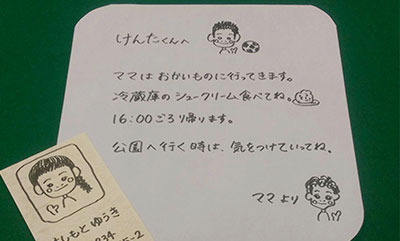 けんたくんへ
ママはおかいものに行ってきます。
冷蔵庫のシュークリーム食べてね。
16:00ごろ帰ります。
公園へ行く時は、気をつけていってね。
ママより
もとゆうき
234
5-2